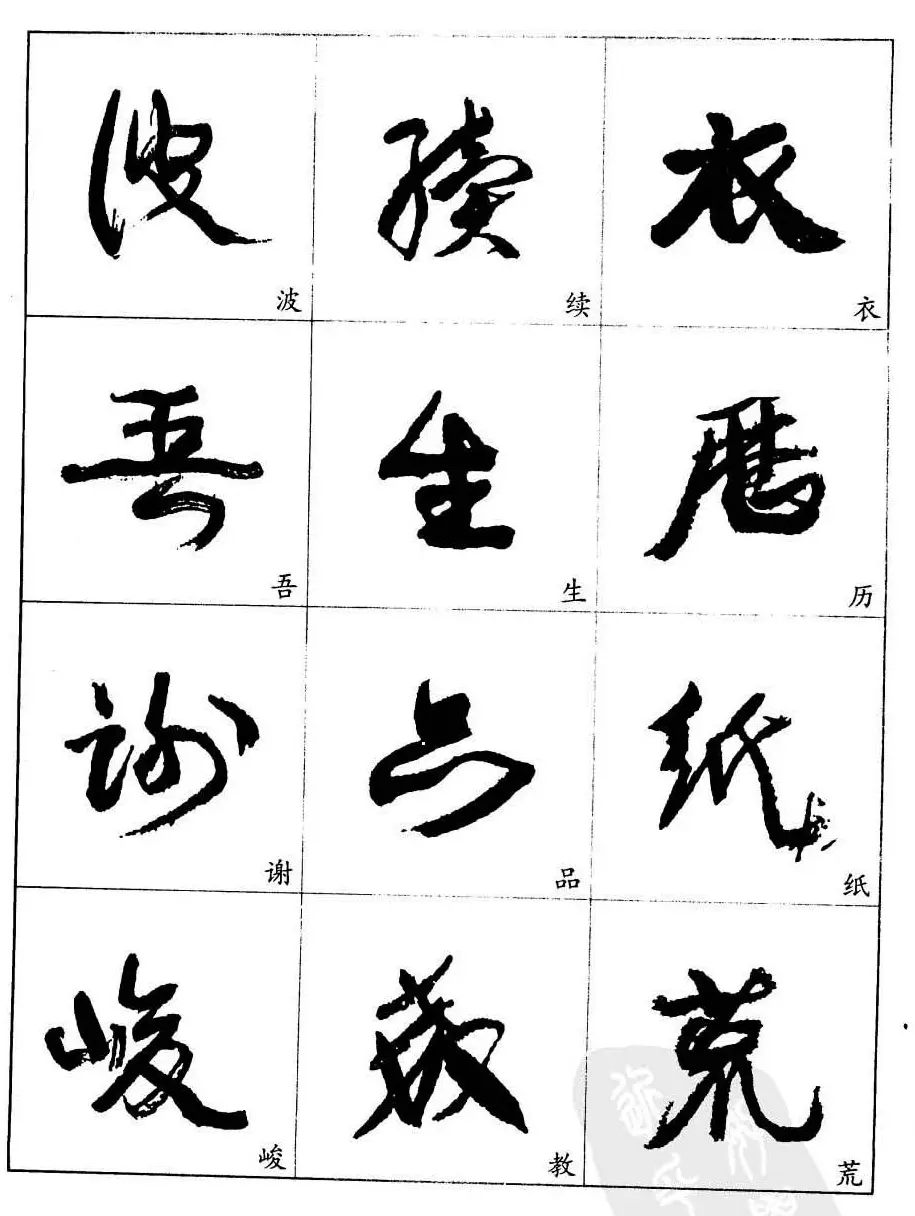 波 续 衣
吾 生 历
谢 品 纸
峻 教 荒